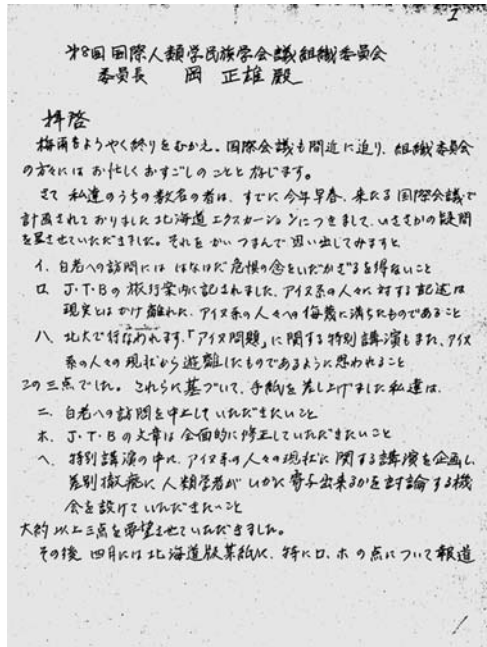 1
第8回国際人類学民族学会議組織委員会
委員長 岡 正雄 殿
拝啓
梅雨もようやく終りをむかえ、国際会議も間近に迫り、組織委員会
の方々には お忙しく おすごしのことと 存じます。
さて 私達のうちの数名の者は、すでに今年早春、来たる国際会議で
計画されておりました北海道エクスカーションにつきまして、いささかの疑問
を呈させていただきました。それを かいつまんで 思い出してみますと
イ. 白老への訪問には はなはだ 危惧の念をいだかざるを得ないこと
ロ J・T・Bの旅行案内に記されました、アイヌ系の人々に対する記述は
現実とはかけ離れた、アイヌ系の人々への侮蔑に満ちたものであること
ハ、北大で行なわれます、「アイヌ問題」に関する特別講演もまた、アイヌ
系の人々の現状から遊離したものであるように思われること
この三点でした。これらに基づいて、手紙を差し上げました私達は、
ニ. 白老への訪問を中止していただきたいこと
ホ. J・T・Bの文章は全面的に修正していただきたいこと
ヘ、特別講演の中に、アイヌ系の人々の現状に関する講演を企画し、
差別撤廃に、人類学者がいかに寄与出来るかを討論する機
会を設けていただきたいこと
大約以上三点を要望させていただきました。
その後 四月には北海道版某紙に、特にロ、ホの点について報道
1